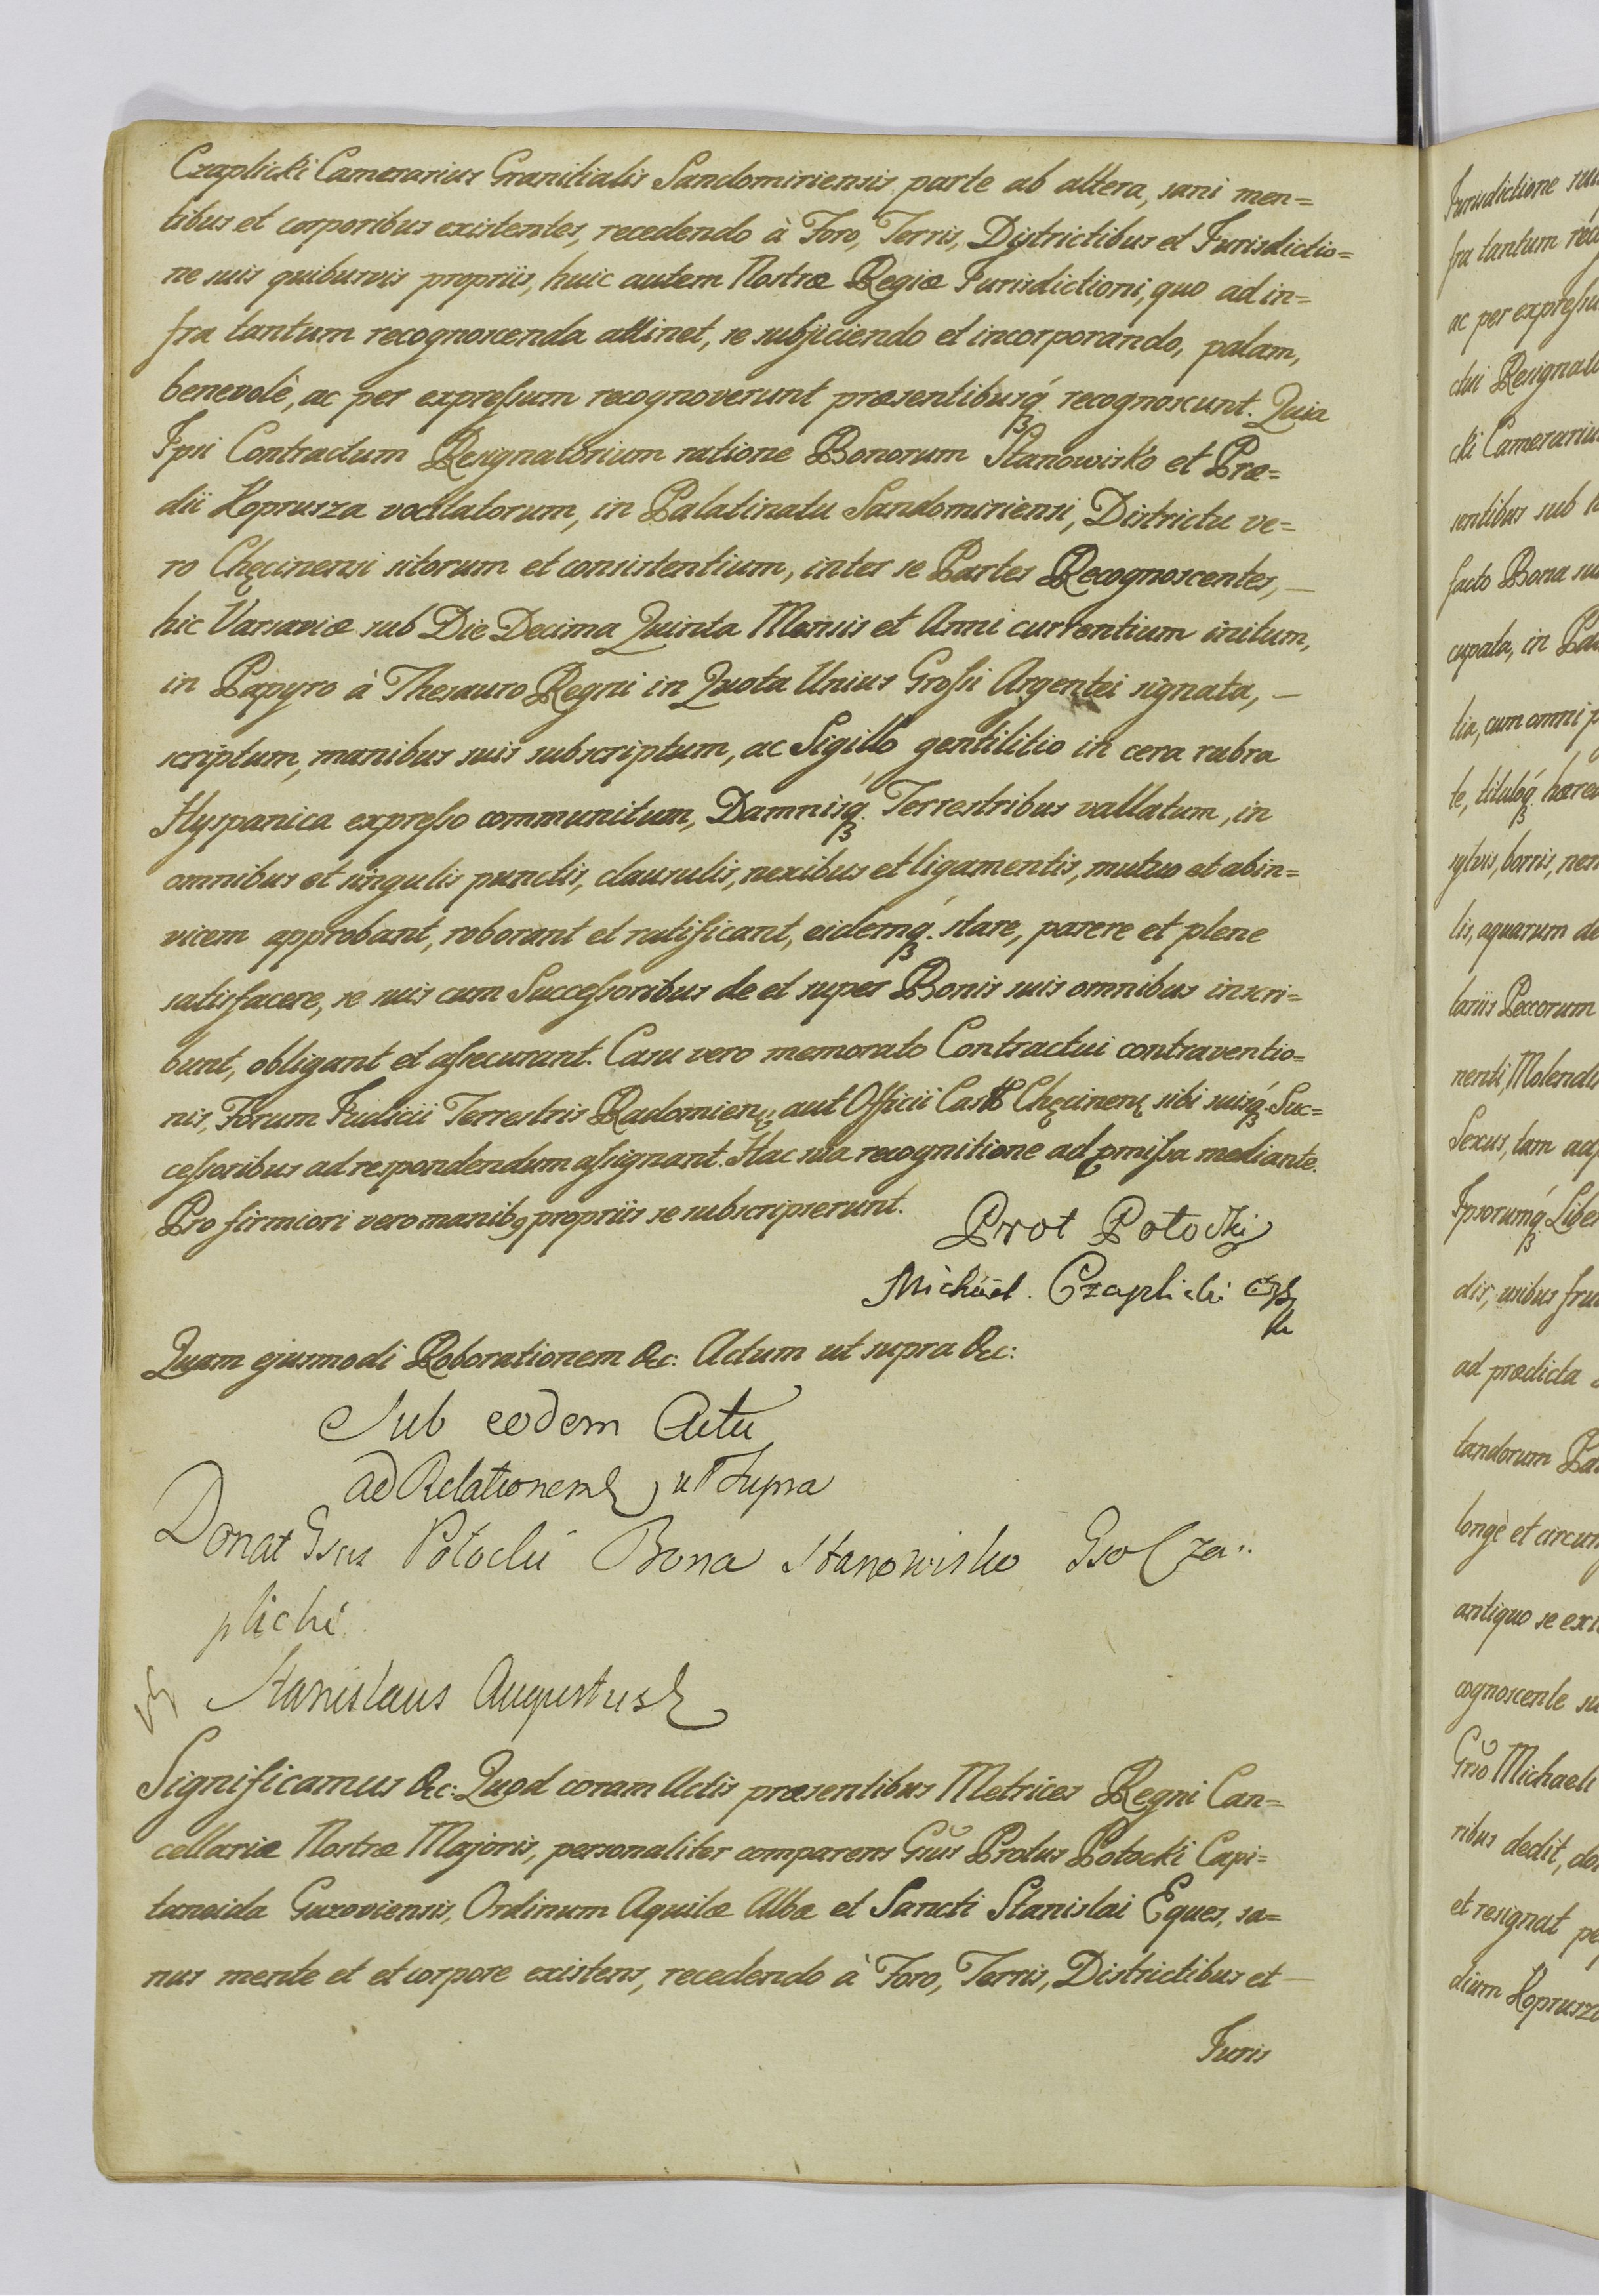 Czaplicki Camerarius Granitialis Sandomiriensis parte ab altera, sani men=
tibus et corporibus existentes, recedendo à Foro, Terris, Districtibus et Jurisdictio=
ne suis quibusvis propriis, huic autem Nostræ Regiæ Jurisdictioni, quo ad in=
fra tantum recognoscenda attinet, se subjiciendo et incorporando, palam,
benevolè, ac per expressum recognoverunt præsentibusq́ꝫ recognoscunt. Quia
Ipsi Contractum Resignatorium ratione Bonorum Stanowisko et Præ=
dii Koprusza vocitatorum, in Palatinatu Sandomiriensi, Districtu ve=
ro Chęcinensi sitorum et consistentium, inter se Partes Recognoscentes, —
hic Varsaviæ sub Die Decima Quinta Mensis et Anni currentium initum,
in Papyro à Thesauro Regni in Quota Unius Grossi Argentei signata, —
scriptum, manibus suis subscriptum, ac Sigillo gentilitio in cera rubra
Hyspanica expresso communitum, Damnisq́ꝫ Terrestribus vallatum, in
omnibus et singulis punctis, clausulis, nexibus et ligamentis, mutuo et abin=
vicem approbant, roborant et ratificant, eidemq́ꝫ stare, parere et plene
satisfacere, se suis cum Successoribus de et super Bonis suis omnibus inscri=
bunt, obligant et assecurant. Casu vero memorato Contractui contraventio=
nis, Forum Judicii Terrestris Radomien, aut Officii Castr Chęcinen sibi suisq́ꝫ Suc=
cessoribus ad respondendum assignant. Hac sua recognitione ad pmissa mediante.
Pro firmiori vero manibꝰ propriis se subscripserunt.
Prot Potocki
Michael Czaplicki
Quam ejusmodi Roborationem &c: Actum ut supra &c:
Sub eodem Actu
ad Relationem ut Supra
Donat Gsus Potocki Bona Stanowisko Gso Cza=
plicki
Stanislaus Augustus
Significamus &c: Quod coram Actis præsentibus Metrices Regni Can=
cellariæ Nostræ Majoris, personaliter comparens Gsus Protus Potocki Capi=
taneida Guzoviensis, Ordinum Aquilæ Albæ et Sancti Stanislai Eques, sa=
nus mente et et corpore existens, recedendo à Foro, Terris, Districtibus et —
Juris
Jurisdictione
fra tantum
ac per
Resignato
cki
sentibus sub
facto Bona
cupata, in
tia, cum omni
te, tituloq́ꝫ
sylvis, borris,
lis, aquarum
tariis Pecorum
nenti,
Sexus, tam
Ipsorumq́ꝫ
dis, usibus
ad prædicta
tandorum
longè et
antiquo se
cognoscente
Gso Michaeli
ribus dedit,
et resignat
dium